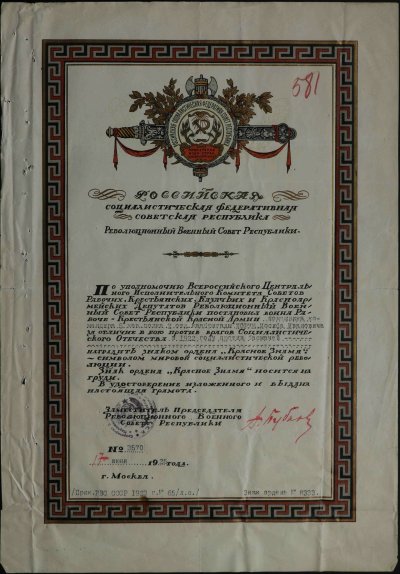 581
Российская
Социалистическая Федеративная
Советская Республика
Революционный Военный Совет Республики.
По уполномочию Всероссийского Централь-
ного Исполнительного Комитета Советов
Рабочих, Крестьянских, Казачьих и Красноар-
мейских Депутатов Революционный Воен-
ный Совет Республики постановил воина Ра-
боче-Крестьянской Красной Армии
за отличие в бою против врагов Социалистиче-
ского Отечества в 1922 году против
наградить знаком ордена „Красное Знамя“
—символом мировой социалистической рево-
люции.
Знак ордена „Красное Знамя“ носится на
груди.
В удостоверение изложенного и выдана
настоящая грамота.
Заместитель Председателя
Революционного Военного
Совета Республики
№ 3570
17 июня 1925 года.
г. Москва.
/Прик. РВС СССР 192 г. № 65/л.с./ Знак ордена №